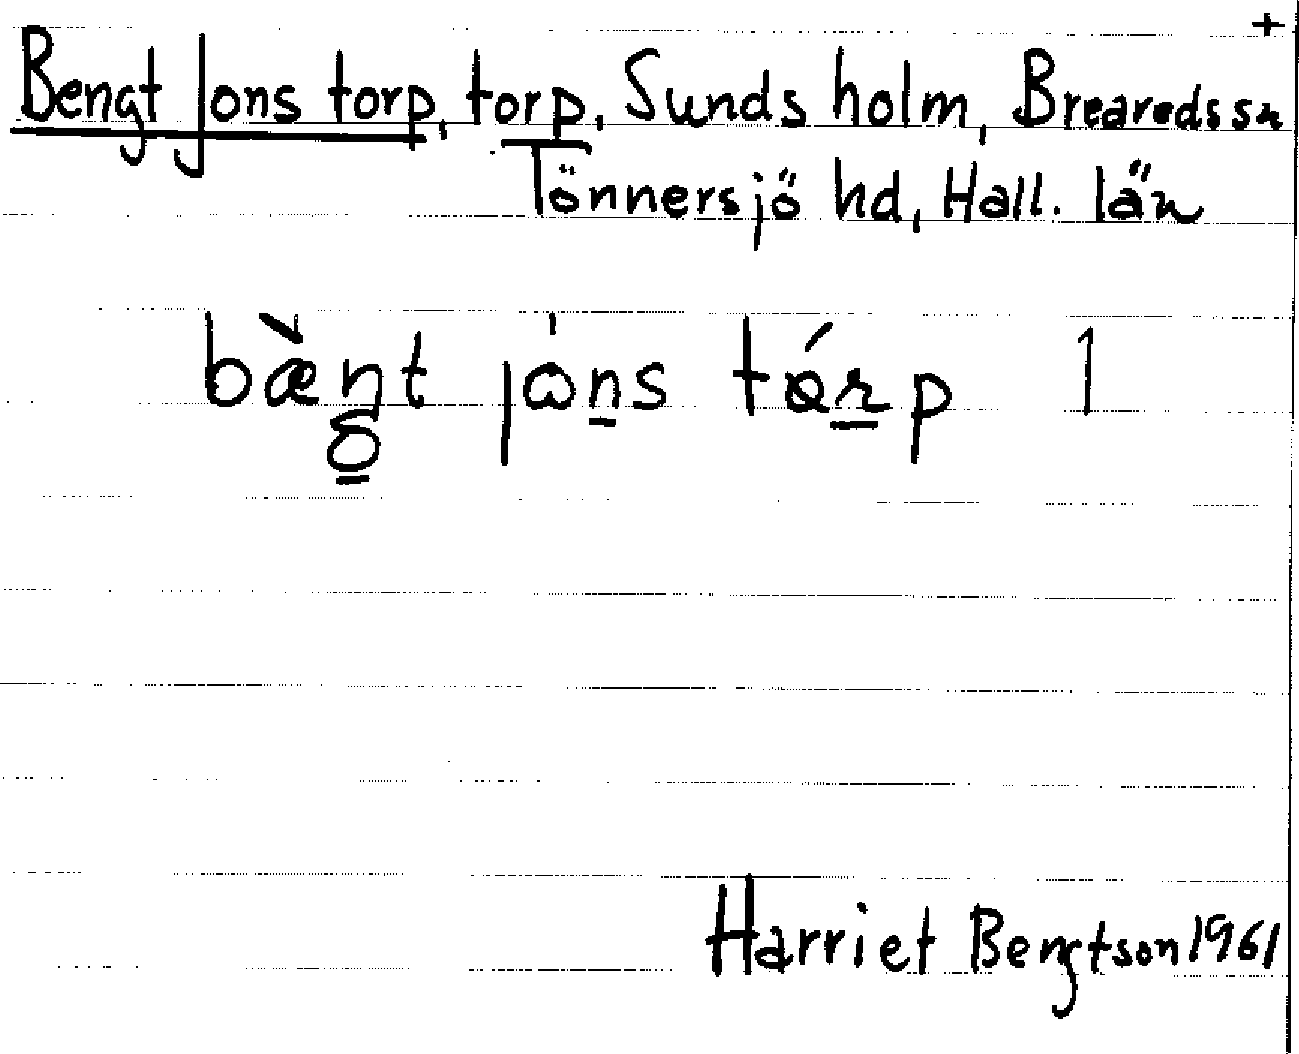 +
Bengt Jons torp, torp, Sunds holm, Breareds sn
Tönnersjö hd, Hall. län
bæ̀ŋt jós tɑ́rp 1
Harriet Bengtson 1961